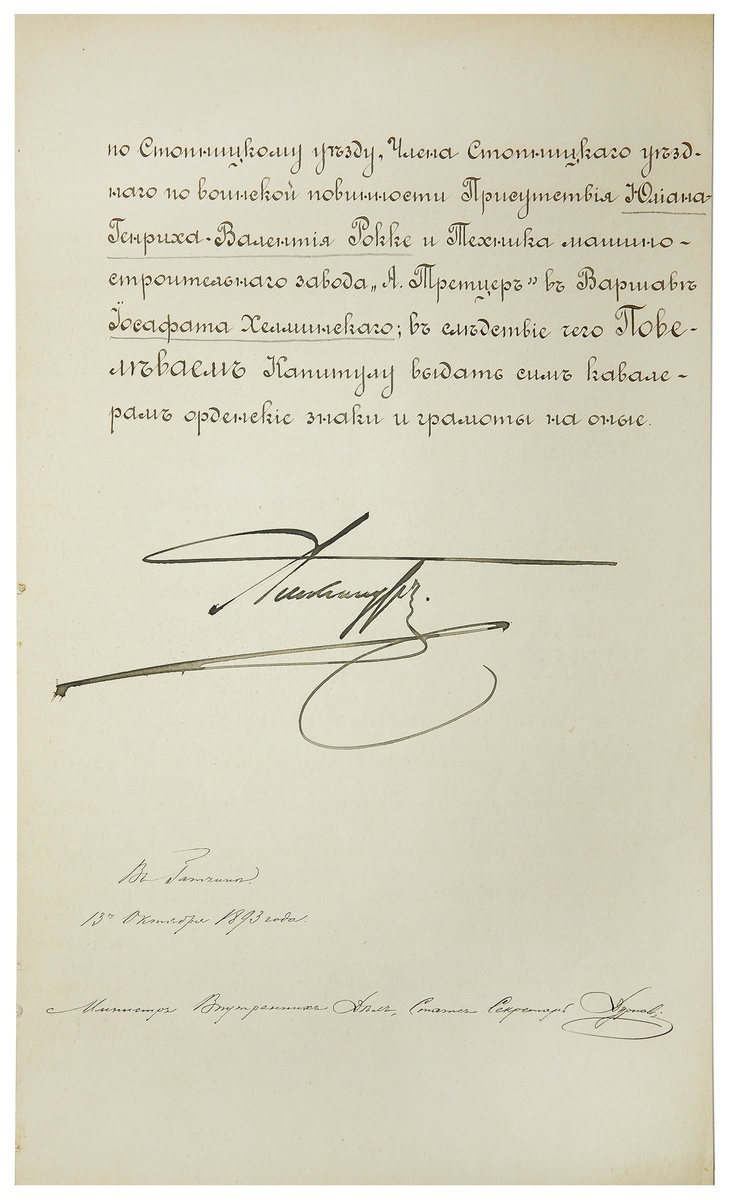 по Стопницкому уѣзду, Члена Стопницкаго уѣзд-
наго по воинской повинности Присутствія Юліана-
Генриха-Валентія Рокке и Техника машино-
строительнаго завода „А. Третцеръ” въ Варшавѣ
Іосафата Хелминскаго; въ слѣдствіе чего Пове-
лѣваемъ Капитулу выдать симъ кавале-
рамъ орденскіе знаки и грамоты на оные.
Александръ.
Въ Гатчинѣ.
13го Октября 1893 года.
Министръ Внутреннихъ Дѣлъ, Статсъ Секретарь Дурново